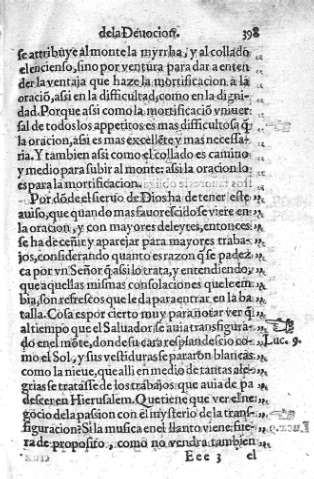 de la Deuocion. 398
se attribuye al monte la myrrha, y al collado
el encienso, sino por ventura para dar a enten
der la ventaja que haze la mortificacion a la
oraciõ, assi en la difficultad, como en la digni-
dad. Porque assi como la mortificaciõ vniuer
sal de todos los appetitos es mas difficultosa q̃
la oracion, assi es mas excelẽte y mas necessa-
ria. Y tambien assi como el collado es camino
y medio para subir al monte: assi la oracion lo
es para la mortificacion.
Por dõde el sieruo de Dios ha de tener este
auiso, que quando mas fauorescido se viere en
la oracion, y con mayores deleytes, entonces
se ha de ceñir y aparejar para mayores traba-
jos, considerando quanto es razon q̃ se padez
ca por vn Señor q̃ assi lo trata, y entendiendo,
que aquellas mismas consolaciones que le em
bia, son refrescos que le da para entrar en la ba
talla. Cosa es por cierto muy para notar ver q̃
al tiempo que el Saluador se auia transfigura-
do en el mõte, donde su cara resplandescio co-
mo el Sol, y sus vestiduras se pararon blancas
como la nieue, que alli en medio de tantas ale-
grias se tratasse de los trabajos que auia de pa
descer en Hierusalem. Que tiene que ver el ne
gocio de la passion con el mysterio de la trans-
figuracion? Si la musica en el llanto viene fue-
ra de proposito, como no vendra tambien
Luc. 9.
Eee 3 el